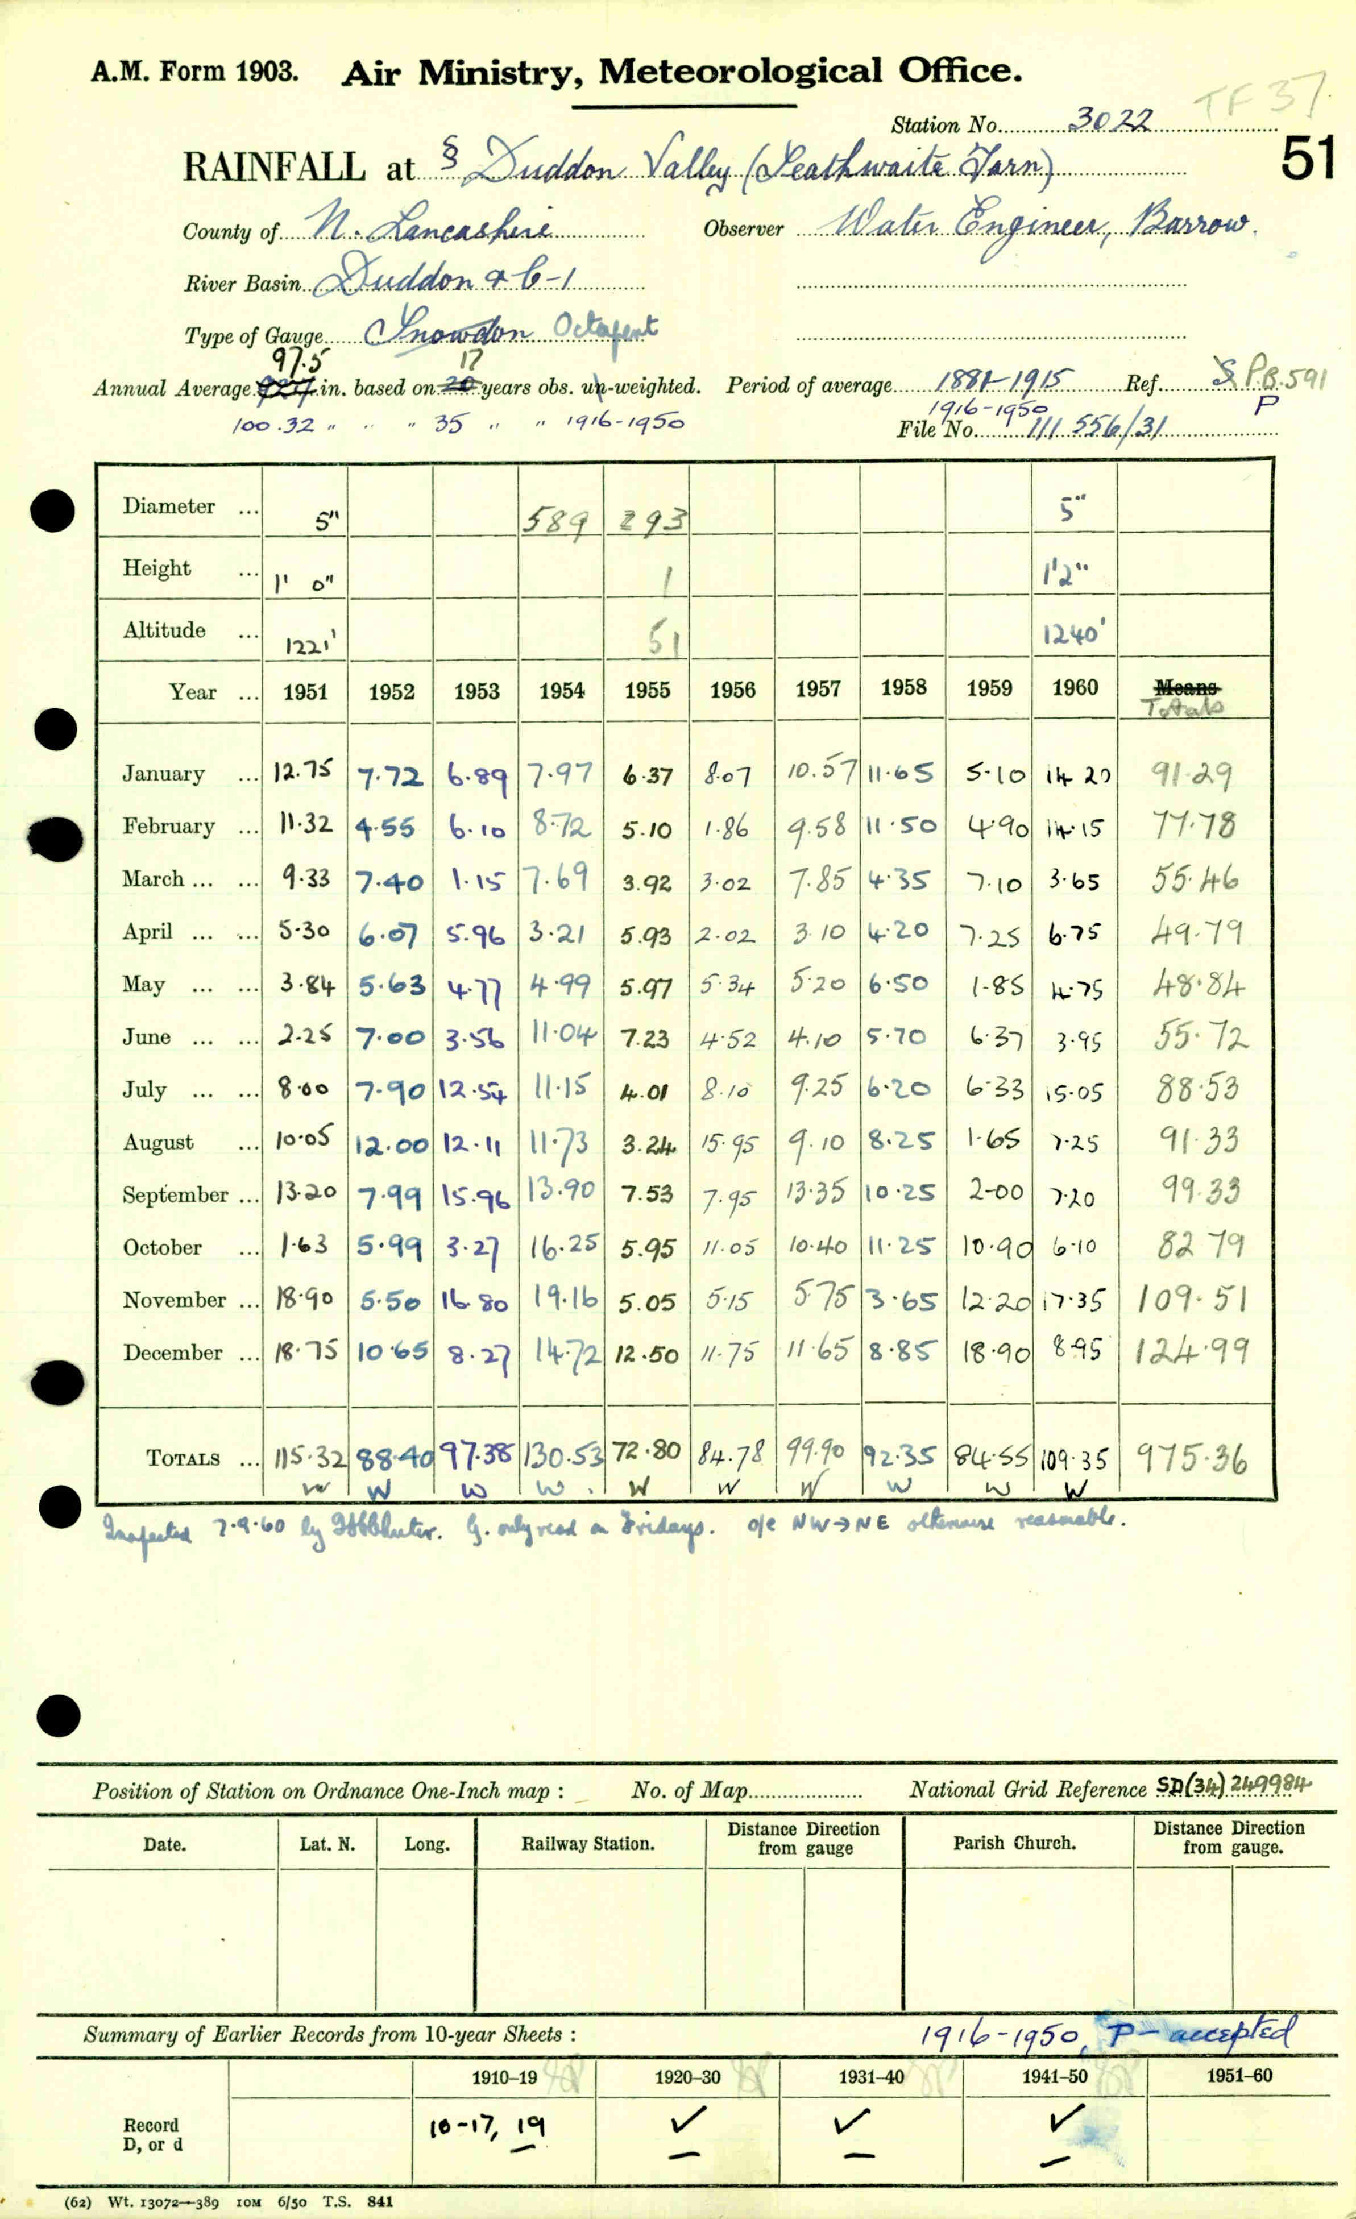 A.M. Form 1903. Air Ministry, Meteorological Office.
TF 37.
Station No. 3022
51
RAINFALL at § Duddon Valley (Seathwaite Tarn)
County of N. Lancashire Observer Water Engineer, Barrow.
River Basin Duddon 9 6-1
Type of Gauge Snowdon Octapent
97.5 17
Annual Average in. based on 20 years obs. un-weighted. Period of average 1881-1915 Ref. S PB.591
100.32 " " " 35 " " 1916-1950 1916-1950 P
File No. 111 556/31
Diameter ... 5" 589 293 5"
Height ... 1' 0" 1 1'2"
Altitude ... 1221' 51 1240'
Year ... 1951 1952 1953 1954 1955 1956 1957 1958 1959 1960 Means
Totals
January ... 12.75 7.72 6.89 7.97 6.37 8.07 10.57 11.65 5.10 14.20 91.29
February ... 11.32 4.55 6.10 8.72 5.10 1.86 9.58 11.50 4.90 14.15 77.78
March ... ... 9.33 7.40 1.15 7.69 3.92 3.02 7.85 4.35 7.10 3.65 55.46
April ... ... 5.30 6.07 5.96 3.21 5.93 2.02 3.10 4.20 7.25 6.75 49.79
May ... ... 3.84 5.63 4.77 4.99 5.97 5.34 5.20 6.50 1.85 4.75 48.84
June ... ... 2.25 7.00 3.56 11.04 7.23 4.52 4.10 5.70 6.37 3.95 55.72
July ... ... 8.00 7.90 12.54 11.15 4.01 8.10 9.25 6.20 6.33 15.05 88.53
August ... 10.05 12.00 12.11 11.73 3.24 15.95 9.10 8.25 1.65 7.25 91.33
September ... 13.20 7.99 15.96 13.90 7.53 7.95 13.35 10.25 2.00 7.20 99.33
October ... 1.63 5.99 3.27 16.25 5.95 11.05 10.40 11.25 10.90 6.10 82.79
November ... 18.90 5.50 16.80 19.16 5.05 5.15 5.75 3.65 12.20 17.35 109.51
December ... 18.75 10.65 8.27 14.72 12.50 11.75 11.65 8.85 18.90 8.95 124.99
TOTALS ... 115.32 88.40 97.38 130.53 72.80 84.78 99.90 92.35 84.55 109.35 975.36
W W W W W W W W W W
Inspected 7.9.60 by G. only read on Fridays. o/e NW→NE otherwise reasonable.
Position of Station on Ordnance One-Inch map : No. of Map National Grid Reference SD(34) 249984
Date. Lat. N. Long. Railway Station. Distance from Direction gauge Parish Church. Distance from Direction gauge.
Summary of Earlier Records from 10-year Sheets : 1916-1950, P- accepted
1910–19 1920–30 1931–40 1941–50 1951–60
Record 10-17, 19 ✓ ✓ ✓
D, or d
(62) Wt. 13072—389 10M 6/50 T.S. 841